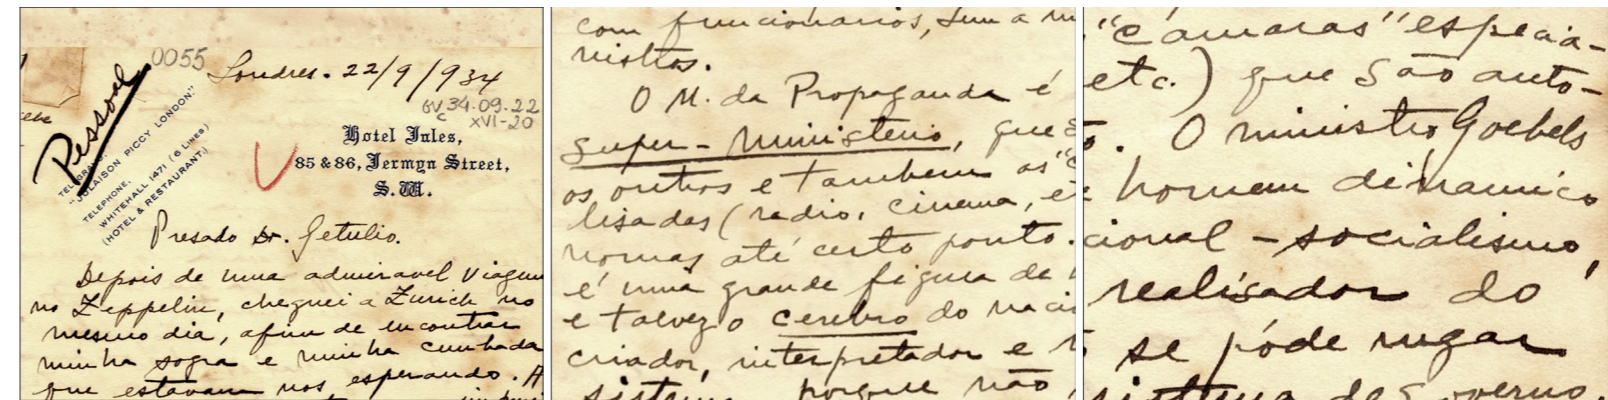 0055
Londres. 22/9/934
Pessoal
GV 34.09.22
c XVI-20
TELEGRAMS:
"JULAISON PICCY LONDON."
TELEPHONE,
WHITEHALL 1471 (6 LINES)
(HOTEL & RESTAURANT.)
Hotel Jules,
85 & 86, Jermyn Street,
S.W.
Presado Dr. Getulio.
Depois de uma admiravel viagem
no Zeppelin, cheguei a Zurich no
mesmo dia, afim de encontrar
minha sogra e minha cunhada
que estavam nos esperando. A
com funcionarios, sem a
nistros.
O M. da Propaganda é
super-ministerio, que
os outros e tambem as "c
lisadas (radio, cinema, et
nomas até certo ponto.
é uma grande figura de
e talvez o cerebro do naci
criador, interpretador e r
sistema porque não
"camaras" especia-
etc.) que são auto-
o. O ministro Goebels
homem dinamico
cional-socialismo,
realisador do
se póde negar
sistema de governo,